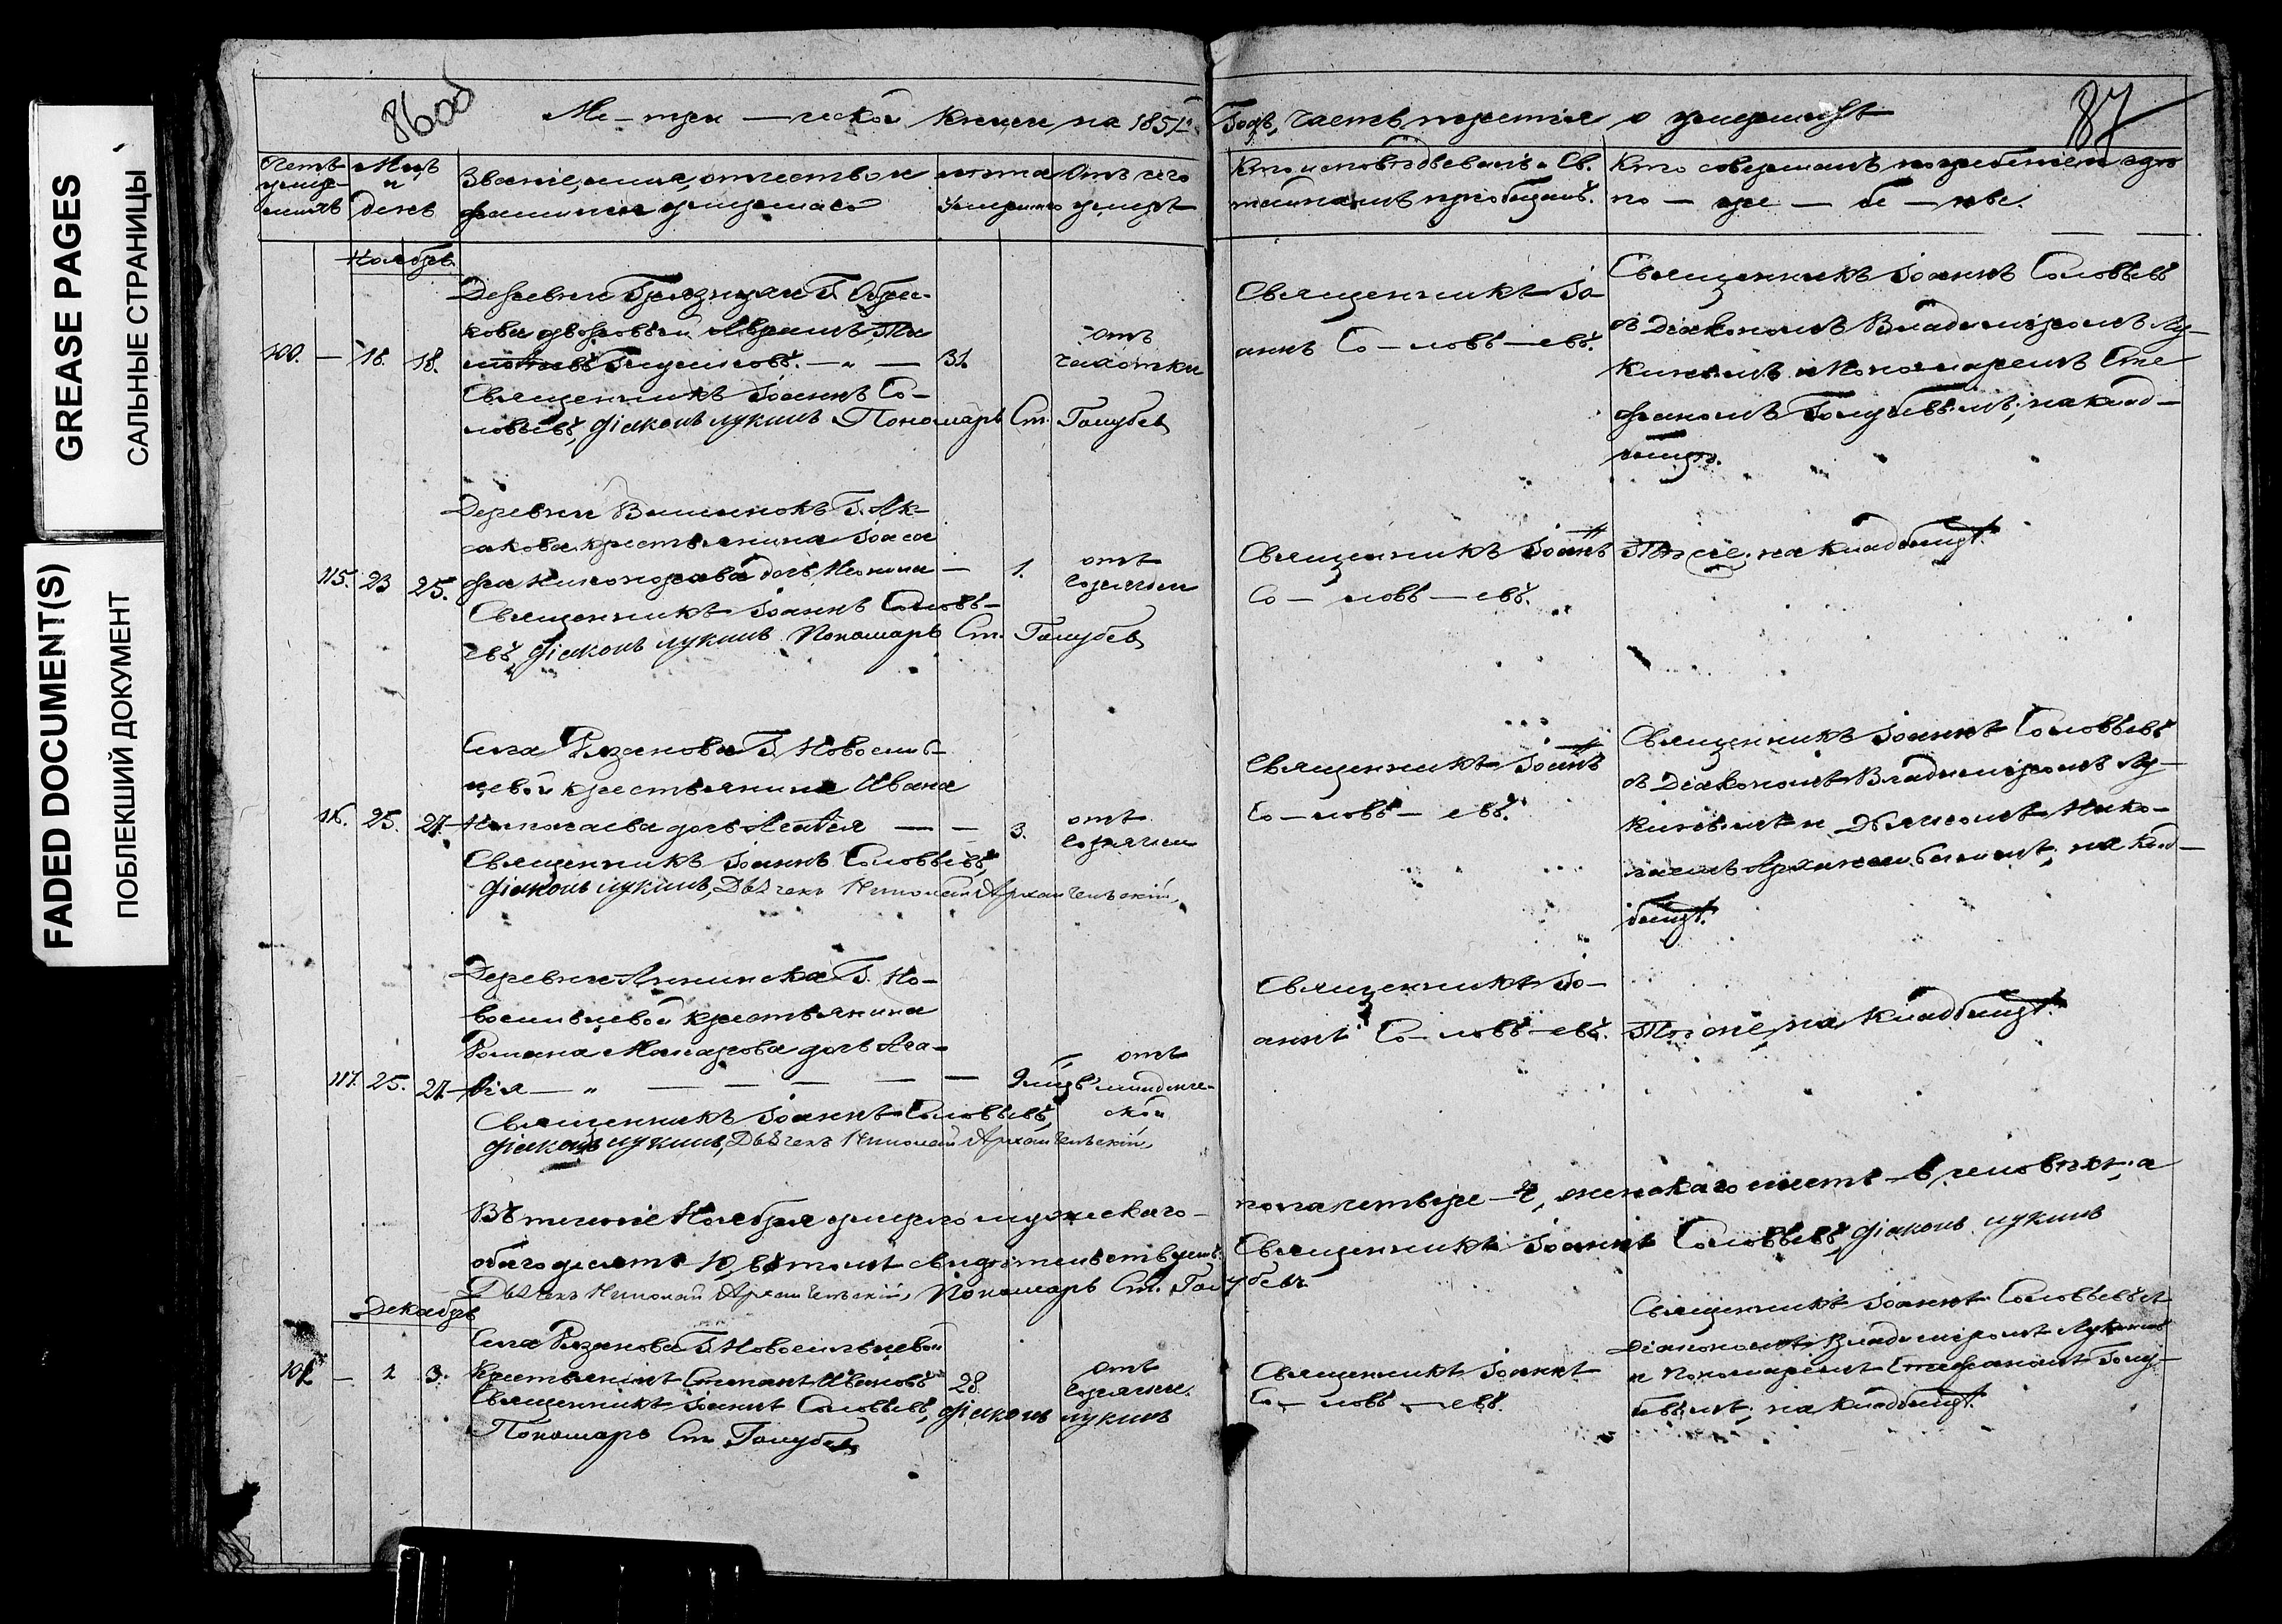 GREASE PAGES
САЛЬНЫЕ СТРАНИЦЫ
FADED DOCUMENT(S)
ПОБЛЕКШИЙ ДОКУМЕНТ
86об
87
Ме-три-ческой книги на 185
Годъ, часть третія о умершихъ
Счетъ умер-шихъ
Мцъ и День
Званіе, имя, отчество и фамилія умершаго
лѣта умершаго
Отъ чего умеръ
Кто исповѣдывалъ и Св. тайнамъ пріобщалъ.
Кто совершалъ погребеніе и гдѣ по-гре-бе-ны.
Ноябрь
Деревни Г.
кова двороввый
100. — 16. 18. 31. отъ чахотки
Священникъ Іоаннъ Со-
ловьевъ, Діаконъ Лукинъ Пономарь Ст. Голубев
Священникъ Іо-
аннъ Со-ловь-евъ.
Священникъ Іоаннъ Соловьевъ
съ Діакономъ Владиміромъ Лу-
кинымъ и Пономаремъ Сте
фаномъ Голубевымъ; на клад-
бищѣ.
Деревни Вишенокъ Г. Ак-
сакова крестьянина Іоаса
115. 23 25. фа Никифорова дочь — 1. отъ горячки
Священникъ Іоаннъ Соловь-
евъ, Діаконъ Лукинъ Пономарь Ст. Голубев
Священникъ Іоаннъ
Со-ловь-евъ.
Тѣ же; на кладбищѣ.
Села Рязанова Г. Новосиль-
цевой крестьянина Ивана
116. 25. 27. Николаева дочь Агафія — — 3. отъ горячки
Священникъ Іоаннъ Соловьевъ,
Діаконъ Лукинъ, Дьячекъ Николай Архангельскій
Священникъ Іоаннъ
Со-ловь-евъ.
Священникъ Іоаннъ Соловьевъ
съ Діакономъ Владиміромъ Лу-
кинымъ и Дьячкомъ Нико-
лаемъ Архангельскимъ, на клад-
бищѣ.
Деревни Аннинска Г. Но-
восильцевой крестьянина
Романа Макарова дочь Ага-
117. 25. 27. фія — 9 мцъ отъ младенче-ской
Священникъ Іоаннъ Соловьевъ,
Діаконъ Лукинъ, Дьячекъ Николай Архангельскій
Священникъ Іо-
аннъ Со-ловь-евъ.
Тѣ же, на кладбищѣ.
Въ теченіе Ноября умерло мужескаго
пола четыре 4, женскаго шесть 6, человѣкъ, а
обаго десять 10, въ томъ свидѣтельствуемъ:
Священникъ Іоаннъ Соловьевъ, Діаконъ Лукинъ
Дьячекъ Николай Архангельскій, Пономарь Ст. Голубевъ
Декабрь
Села Рязанова Г. Новосильцевой
— 1 3. Крестьянинъ Степанъ Ивановъ 28. отъ горячки.
Священникъ Іоаннъ Соловьевъ, Діаконъ Лукинъ
Пономарь Ст. Голубев
Священникъ Іоаннъ
Со-ловь-евъ.
Священникъ Іоаннъ Соловьевъ съ
Діакономъ Владиміромъ Лукинымъ
и Пономаремъ Стефаномъ Голу-
бевымъ; на кладбищѣ.